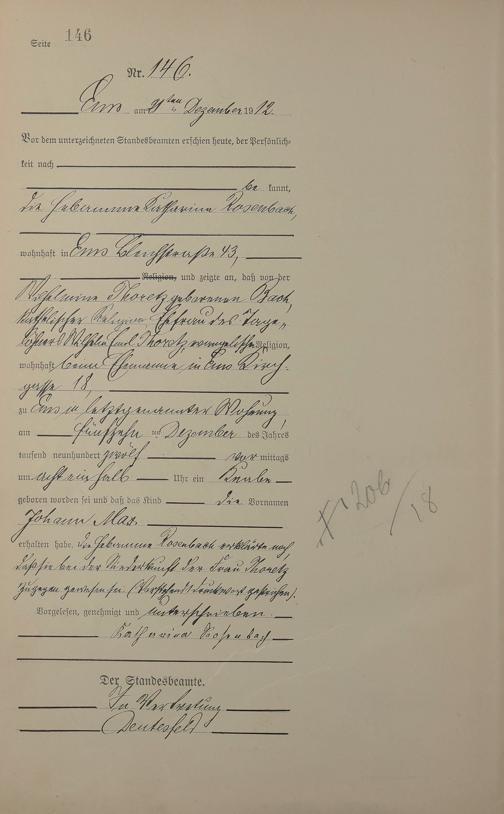 Seite 146
Nr. 146.
Ems am ten Dezember 1912.
Vor dem unterzeichneten Standesbeamten erschien heute, der Persönlich-
keit nach
be kannt,
die Hebamme Katharina Rosenbach,
wohnhaft in Ems Bleichstraße 43,
Religion, und zeigte an, daß von der
Wilhelmine Thoretz geborenen Bach,
katholischer Religion, Ehefrau des Tage-
löhners Wilhelm Emil Thoretz evangelischer Religion,
wohnhaft beim Ehemanne in Ems Kirch-
gasse 18,
zu Ems in letztgenannter Wohnung,
am fünfzehn ten Dezember des Jahres
tausend neunhundert zwölf vor mittags
um acht ein halb Uhr ein Knabe
geboren worden sei und daß das Kind die Vornamen
Johann Max.
erhalten habe. Die Hebamme Rosenbach erklärte noch
daß sie bei der Niederkunft der Frau Thoretz
zugegen gewesen sei. (Vorstehend 1 Druckwort gestrichen).
Vorgelesen, genehmigt und unterschrieben.
Katharina Rosenbach
Der Standesbeamte.
In Vertretung
206
/18